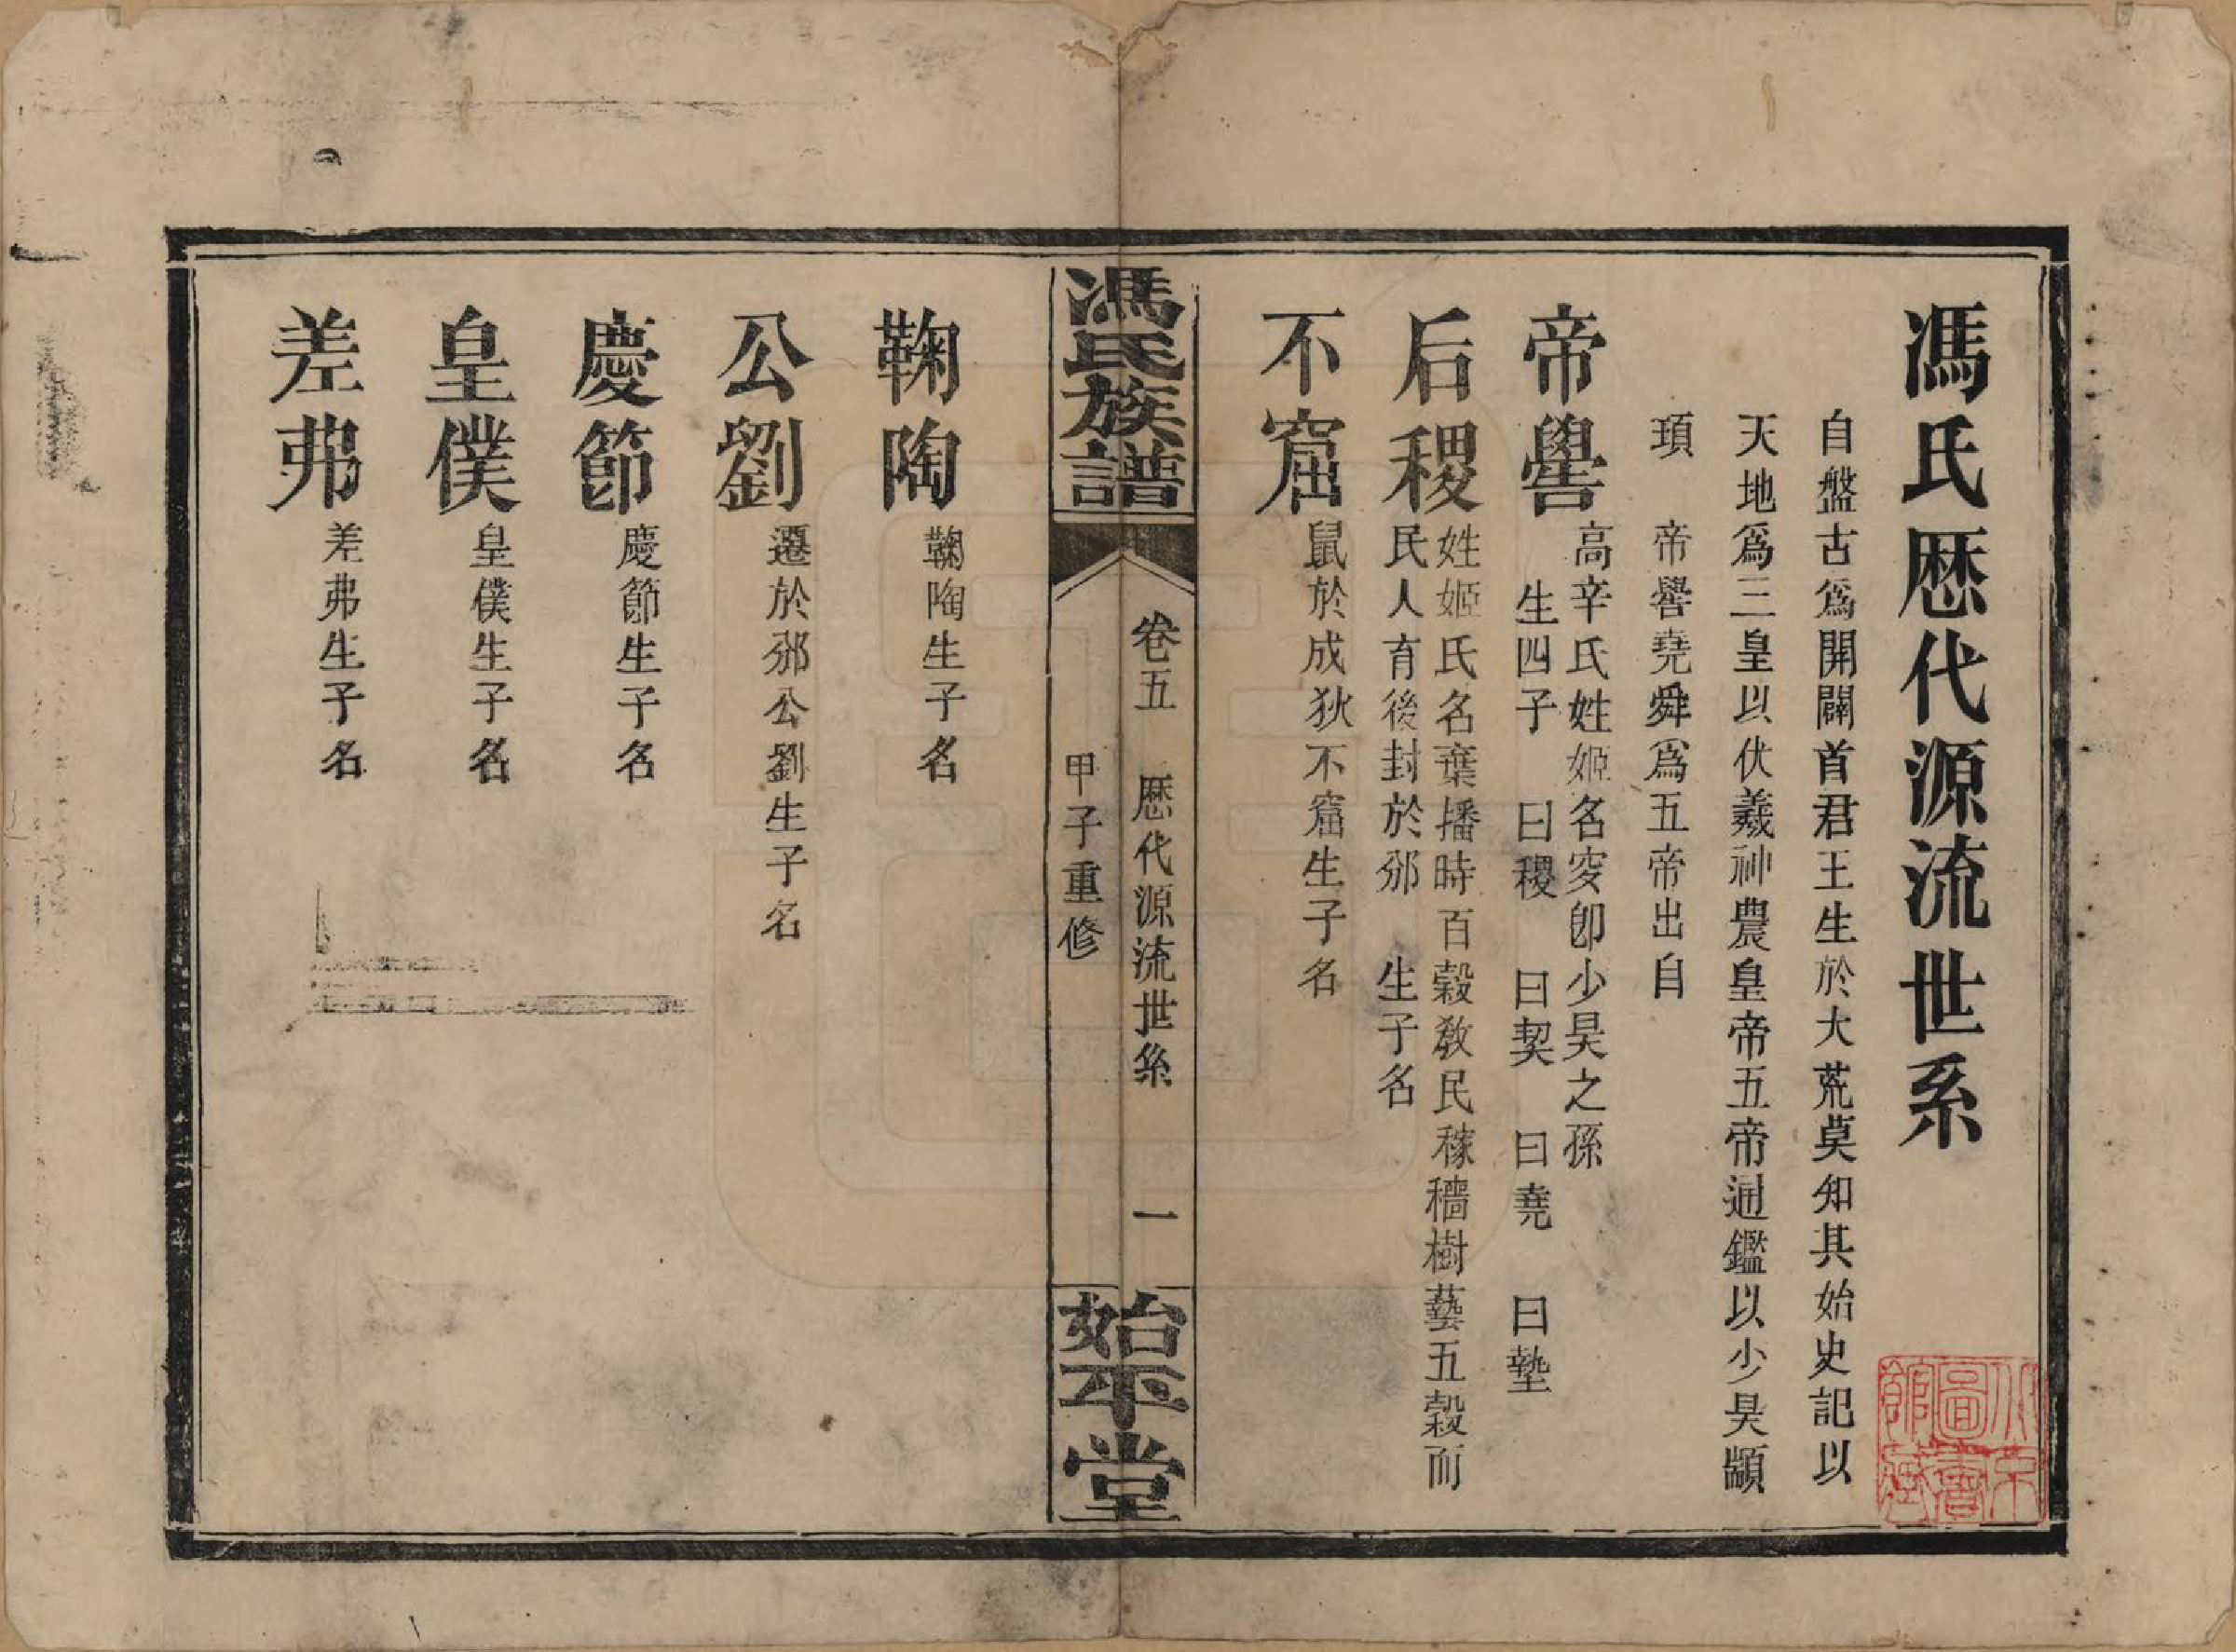 馮氏歴代源流世系
自盤古爲開闢首君王生於大荒莫知其始史記以
天地爲三皇以伏羲神農皇帝五帝通鑑以少昊顓
頊　帝嚳堯舜爲五帝出自
帝嚳
高辛氏姓姬名夋卽少昊之孫
生四子　曰稷　曰契　曰堯　曰摯
后稷
姓姬氏名葉播時百穀敎民稼穡樹藝五穀而
民人育後封於邠　生子名
不窟
鼠於成狄不窟生子名
馮氏族譜
卷五　歴代源流世系　一
甲子重修
始平堂
鞠陶
鞠陶生子名
公劉
遷於邠公劉生子名
慶節
慶節生子名
皇僕
皇僕生子名
差弗
差弗生子名
北京
圖書
館藏